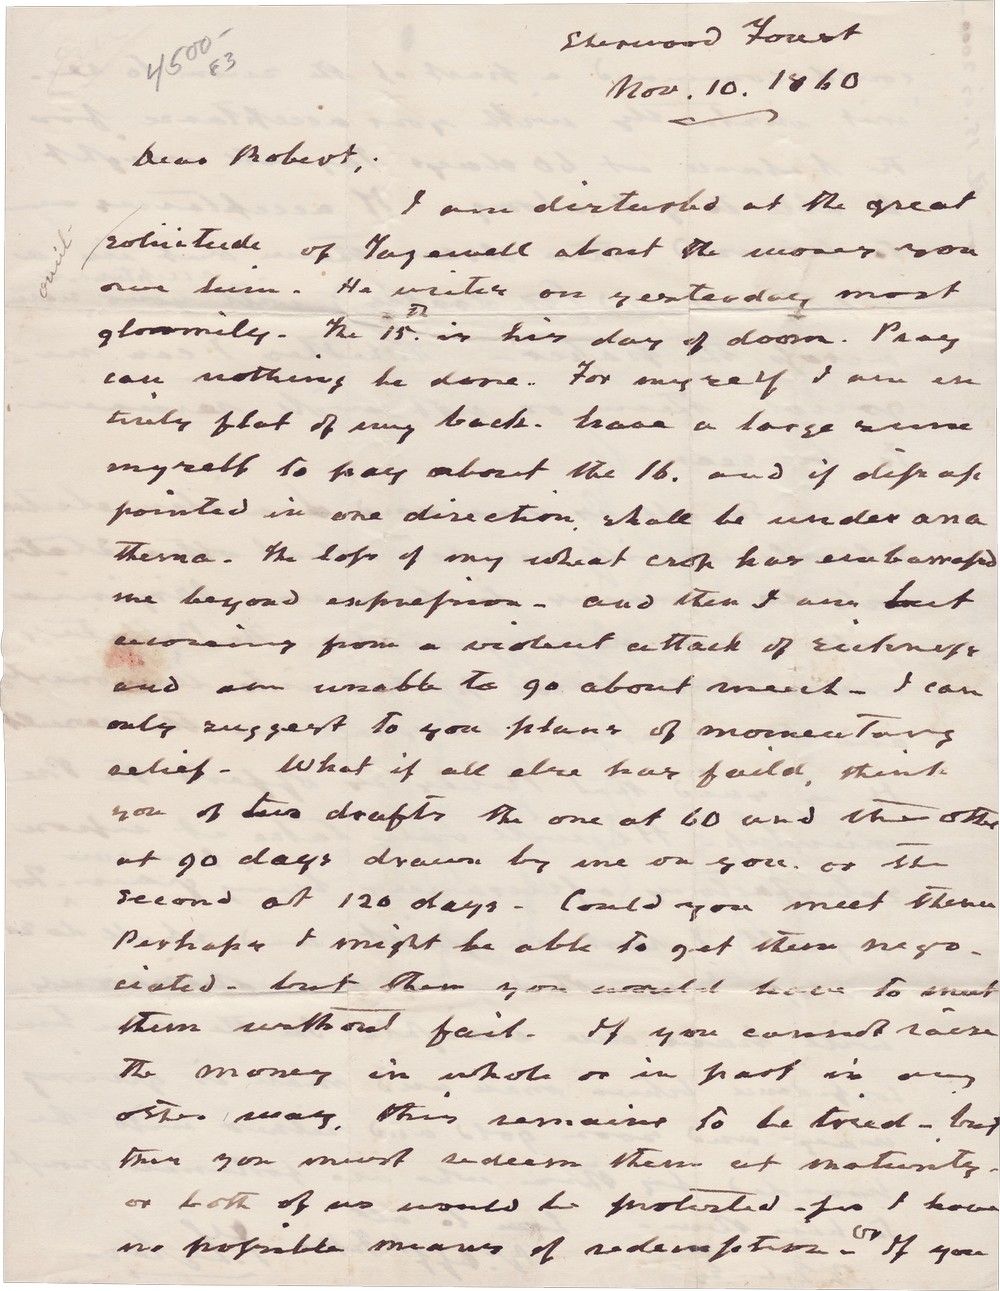 4500-
E3
Sherwood Forest
Nov. 10. 1860
Dear Robert,
I am disturbed at the great
solicitude of Tazewell about the money you
owe him. He writes on yesterday most
gloomily. The 15th is his day of doom. Pray
can nothing be done. For myself I am en
tirely flat of my back. have a large sum
myself to pay about the 16. and if disap
pointed in one direction, shall be under ana
thema. The loss of my wheat crop has embarrassd
me beyond expression - and then I am but
from a violent attack of sickness
and am unable to go about much - I can
only suggest to you plans of momentary
relief - What if all else has faild, think
you of two drafts the one at 60 and the other
at 90 days drawn by me on you. or the
second at 120 days - Could you meet them
Perhaps I might be able to get them nego-
ciated - but then you would have to meet
them without fail. If you cannot raise
the money in whole or in part in any
other way, this remains to be tried - but
then you must redeem them at maturity -
or both of us would be protested - for I have
no possible means of redemption - or If you